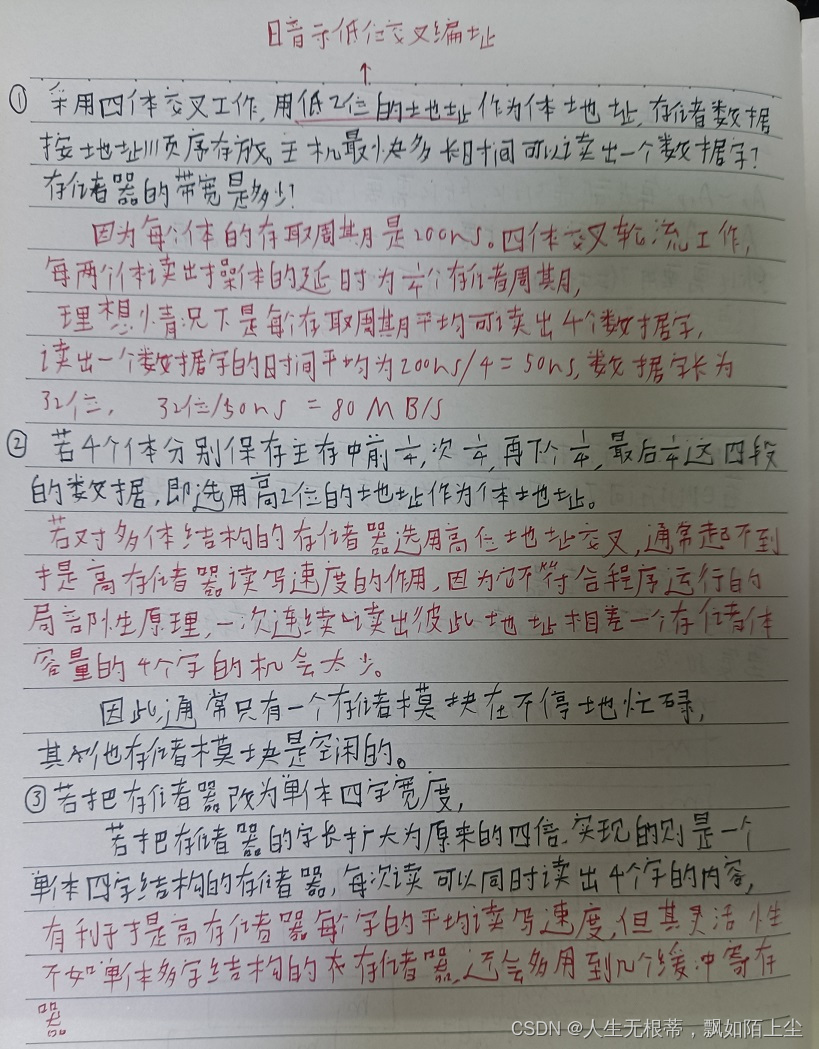 暗示低位交叉编址
↑
① 采用四体交叉工作,用低2位的土地址作为体地址,存储者数据
按地址顺序存放。主机最快多长时间可以读出一个数据字?
存储器的带宽是多少?
因为每个体的存取周期是200ns。四体交叉轮流工作,
每两个体读出操体的延时为1/4个存储周期,
理想情况下是每个存取周期平均可读出4个数据字,
读出一个数据字的时间平均为200ns/4=50ns,数据字长为
32位, 32位/50ns = 80MB/S
② 若4个体分别保存主存中前1/4,次1/4,再下个1/4,最后1/4这四段
的数据,即选用高2位的地址作为体地址。
若对多体结构的存储器选用高位地址交叉,通常起不到
提高存储器读写速度的作用,因为它不符合程序运行的
局部性原理,一次连续读出彼此地址相差一个存储体
容量的4个字的机会太少。
因此,通常只有一个存储模块在不停地忙碌,
其他存储模块是空闲的。
③若把存储器改为单体四字宽度,
若把存储器的字长扩大为原来的四倍,实现的则是一个
单体四字结构的存储器,每次读可以同时读出4个字的内容,
有利于提高存储器每个字的平均读写速度,但其灵活性
不如单体多字结构的存储器,还会多用到几个缓冲寄存
器
CSDN @人生无根蒂,飘如陌上尘